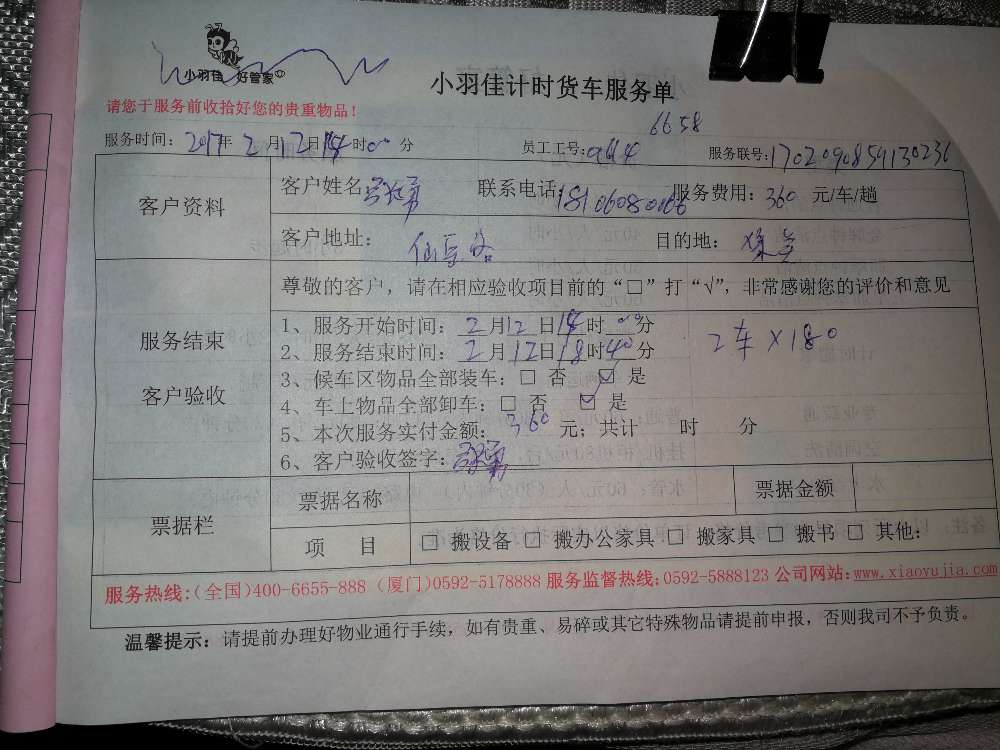 小羽佳 好管家
小羽佳计时货车服务单
请您于服务前收拾好您的贵重物品!
6658
服务时间: 2017年 2 月 12 日 14 时 00 分 员工工号: 服务联号: 1702090859130236
客户资料 客户姓名 联系电话: 服务费用: 360 元/车/趟
客户地址: 仙岳 目的地:
尊敬的客户,请在相应验收项目前的“□”打“√”,非常感谢您的评价和意见
服务结束 客户验收
1、服务开始时间: 2 月 12 日 14 时 00 分
2车×180
2、服务结束时间: 2 月 12 日 18 时 40 分
3、候车区物品全部装车: □ 否 ☑ 是
4、车上物品全部卸车: □ 否 ☑ 是
5、本次服务实付金额: 360 元; 共计 时 分
6、客户验收签字:
票据栏 票据名称 票据金额
项 目 □ 搬设备 □ 搬办公家具 □ 搬家具 □ 搬书 □ 其他:
服务热线:(全国)400-6655-888 (厦门)0592-5178888 服务监督热线:0592-5888123 公司网站:www.xiaoyujia.com
温馨提示: 请提前办理好物业通行手续,如有贵重、易碎或其它特殊物品请提前申报,否则我司不予负责。